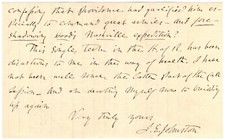 confessing that Providence had qualified him es-
pecially to command great armies - and fore-
shadowing Hood's Nashville expedition?
This single term in the H. of R. has been
disastrous to me in the way of health. I have
not been well since the latter part of the fall
session. And am devoting myself now to building
up again
Very truly yours
J. E. Johnston